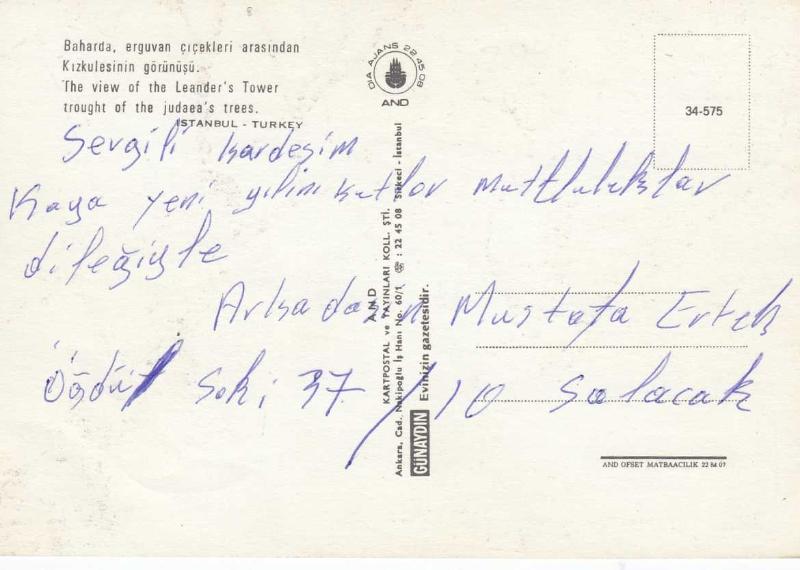 Baharda, erguvan çıçekleri arasından
Kızkulesinin görünüşü.
The view of the Leander's Tower
trought of the judaea's trees.
İSTANBUL - TURKEY
DİA AJANS 22 45 08
AND
34-575
Sevgili kardeşim
Kaya yeni yılını kutlar mutluluklar
dileğiyle
Arkadaşın Mustafa Ertek
Öğdül Sok; 37/10 Salacak
AND
KARTPOSTAL ve YAYINLARI KOLL. ŞTİ.
Ankara, Cad. Nakipoğlu İş Hanı No. 60/1 : 22 45 08 Sirkeci - İstanbul
GÜNAYDIN Evinizin gazetesidir.
AND OFSET MATBAACILIK 22 84 07